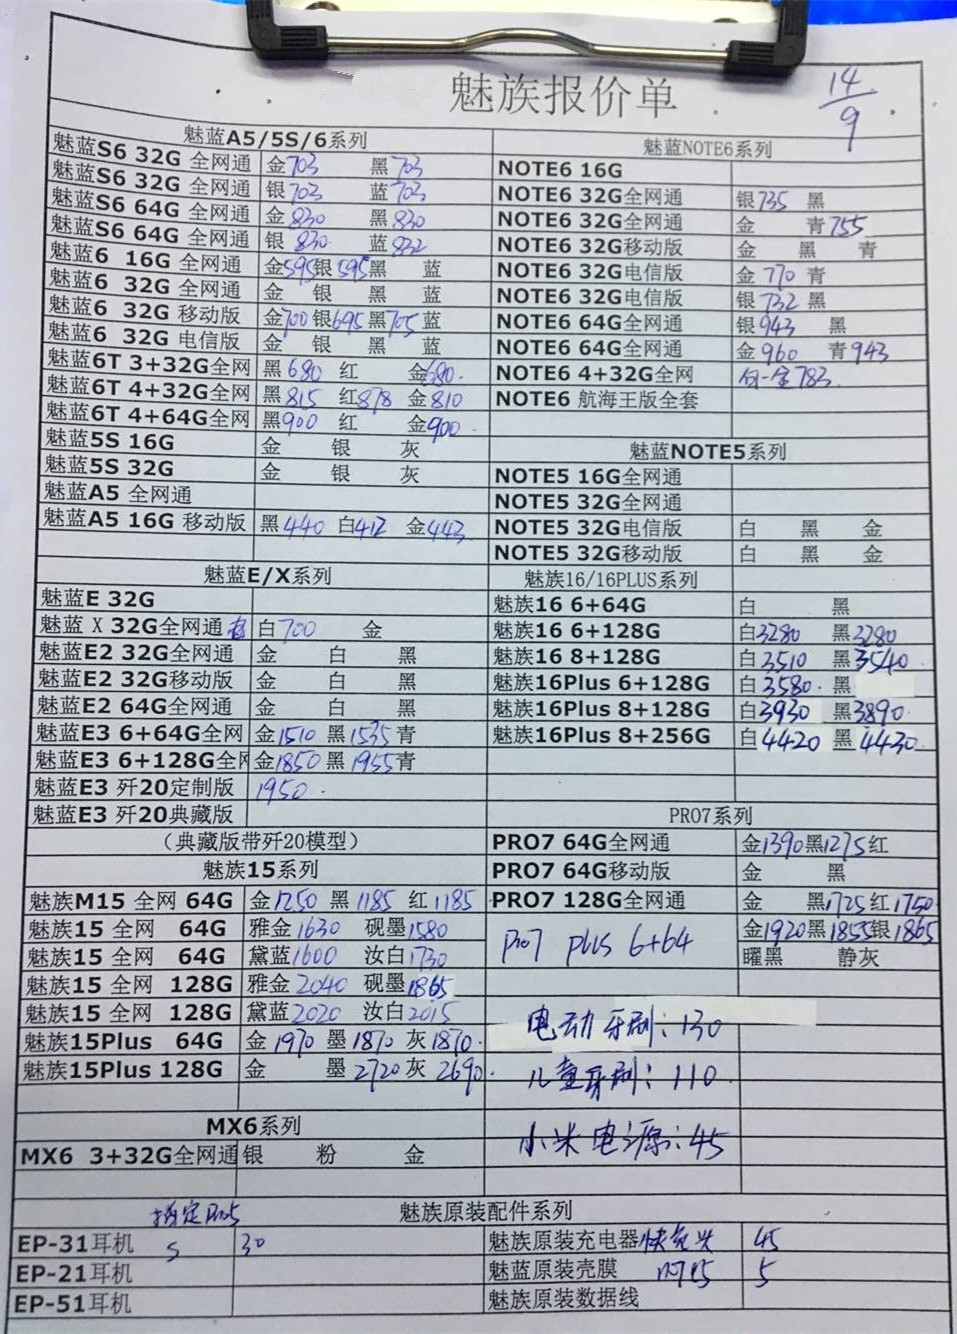 魅族报价单
14/9
魅蓝A5/5S/6系列
魅蓝S6 32G 全网通 金703 黑703
魅蓝S6 32G 全网通 银703 蓝703
魅蓝S6 64G 全网通 金830 黑830
魅蓝S6 64G 全网通 银830 蓝832
魅蓝6 16G 全网通 金595银595黑 蓝
魅蓝6 32G 全网通 金 银 黑 蓝
魅蓝6 32G 移动版 金700银695黑705蓝
魅蓝6 32G 电信版 金 银 黑 蓝
魅蓝6T 3+32G全网 黑680 红 金680.
魅蓝6T 4+32G全网 黑815 红878 金810
魅蓝6T 4+64G全网 黑900 红 金900.
魅蓝5S 16G 金 银 灰
魅蓝5S 32G 金 银 灰
魅蓝A5 全网通
魅蓝A5 16G 移动版 黑440 白412 金443
魅蓝E/X系列
魅蓝E 32G
魅蓝 X 32G全网通 白700 金
魅蓝E2 32G全网通 金 白 黑
魅蓝E2 32G移动版 金 白 黑
魅蓝E2 64G全网通 金 白 黑
魅蓝E3 6+64G全网 金1510 黑1535青
魅蓝E3 6+128G全网 金1850黑1955青
魅蓝E3 歼20定制版 1950.
魅蓝E3 歼20典藏版
（典藏版带歼20模型）
魅族15系列
魅族M15 全网 64G 金1250 黑1185 红1185
魅族15 全网 64G 雅金1630 砚墨1580
魅族15 全网 64G 黛蓝1600 汝白1730
魅族15 全网 128G 雅金2040 砚墨1865
魅族15 全网 128G 黛蓝2020 汝白2015
魅族15Plus 64G 金1970 墨1870 灰1870.
魅族15Plus 128G 金 墨2720灰2690.
MX6系列
MX6 3+32G全网通 银 粉 金
魅蓝NOTE6系列
NOTE6 16G
NOTE6 32G全网通 银735 黑
NOTE6 32G全网通 金 青755
NOTE6 32G移动版 金 黑 青
NOTE6 32G电信版 金 770 青
NOTE6 32G电信版 银732 黑
NOTE6 64G全网通 银943 黑
NOTE6 64G全网通 金960 青943
NOTE6 4+32G全网 783.
NOTE6 航海王版全套
魅蓝NOTE5系列
NOTE5 16G全网通
NOTE5 32G全网通
NOTE5 32G电信版 白 黑 金
NOTE5 32G移动版 白 黑 金
魅族16/16PLUS系列
魅族16 6+64G 白 黑
魅族16 6+128G 白3280 黑3280
魅族16 8+128G 白3510 黑3540.
魅族16Plus 6+128G 白3580. 黑
魅族16Plus 8+128G 白3930 黑3890.
魅族16Plus 8+256G 白4420 黑4430.
PRO7系列
PRO7 64G全网通 金1390黑1275红
PRO7 64G移动版 金 黑
PRO7 128G全网通 金 黑1725红1750.
Pro7 plus 6+64 金1920黑1855银1865
曜黑 静灰
电动牙刷：130
儿童牙刷：110.
小米电源：45
魅族原装配件系列
指定Pro5
EP-31耳机 S 30
EP-21耳机
EP-51耳机
魅族原装充电器快充头 45
魅蓝原装壳膜 5
魅族原装数据线